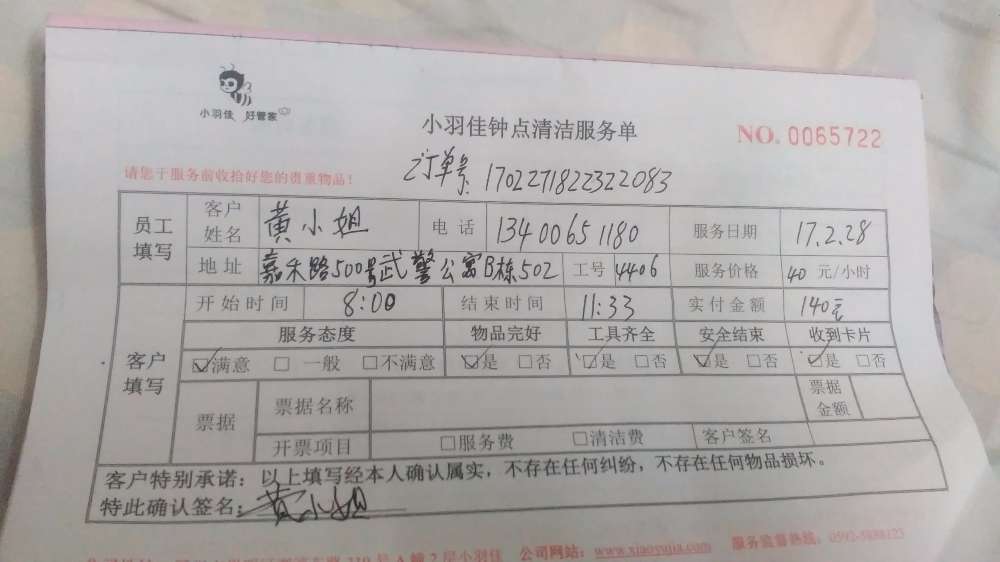 小羽佳 好管家
小羽佳钟点清洁服务单
NO. 0065722
请您于服务前收拾好您的贵重物品!
订单号 1702271822322083
员工填写 客户姓名 黄小姐 电话 13400651180 服务日期 17.2.28
地址 嘉禾路500号武警公寓B栋502 工号 4406 服务价格 40 元/小时
客户填写 开始时间 8:00 结束时间 11:33 实付金额 140元
服务态度 物品完好 工具齐全 安全结束 收到卡片
☑满意 □一般 □不满意 ☑是 □否 ☑是 □否 ☑是 □否 ☑是 □否
票据 票据名称 票据金额
开票项目 □服务费 □清洁费 客户签名
客户特别承诺:以上填写经本人确认属实,不存在任何纠纷,不存在任何物品损坏。
特此确认签名:黄小姐
2层小羽佳 公司网站:www.xiaoyujia.com 服务监督热线: